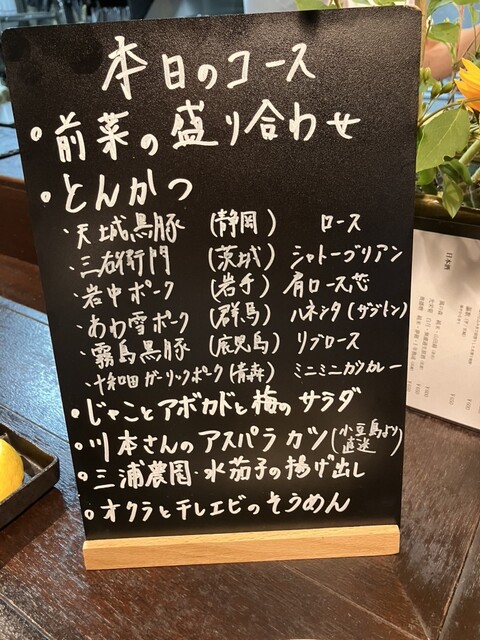 本日のコース
・前菜の盛り合わせ
・とんかつ
・天城黒豚 (静岡) ロース
・三右衛門 (茨城) シャトーブリアン
・岩中ポーク (岩手) 肩ロース芯
・あわ雪ポーク (群馬) ハネシタ(ザブトン)
・霧島黒豚 (鹿児島) リブロース
・十和田ガーリックポーク(青森) ミニミニカツカレー
・じゃことアボカドと梅のサラダ
・川本さんのアスパラガツ(小豆島より直送)
・三浦農園・水茄子の揚げ出し
・オクラとチレエビのそうめん
日本酒